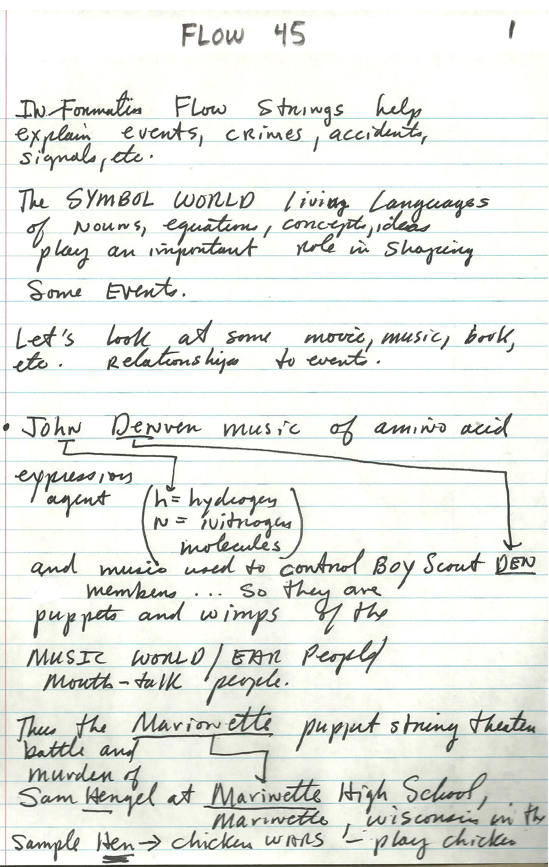 FLOW 45 1
In-Formatin Flow Strings help
explain events, crimes, accidents,
signals, etc.
The SYMBOL WORLD living Languages
of nouns, equations, concepts, ideas
play an important role in Shaping
Some Events.
Let's look at some movie, music, book,
etc. relationships to events.
• John Denver music of amino acid
expression
agent
(h = hydrogen
N = nitrogen
molecules)
and music used to control Boy Scout DEN
members ... So they are
puppets and wimps of the
MUSIC WORLD / EAR People/
Mouth-talk people.
Thus the Marionette puppet string theater
battle and
murder of
Sam Hengel at Marinette High School,
Marinette, Wisconsin in the
Sample Hen → chicken WARS - play chicken